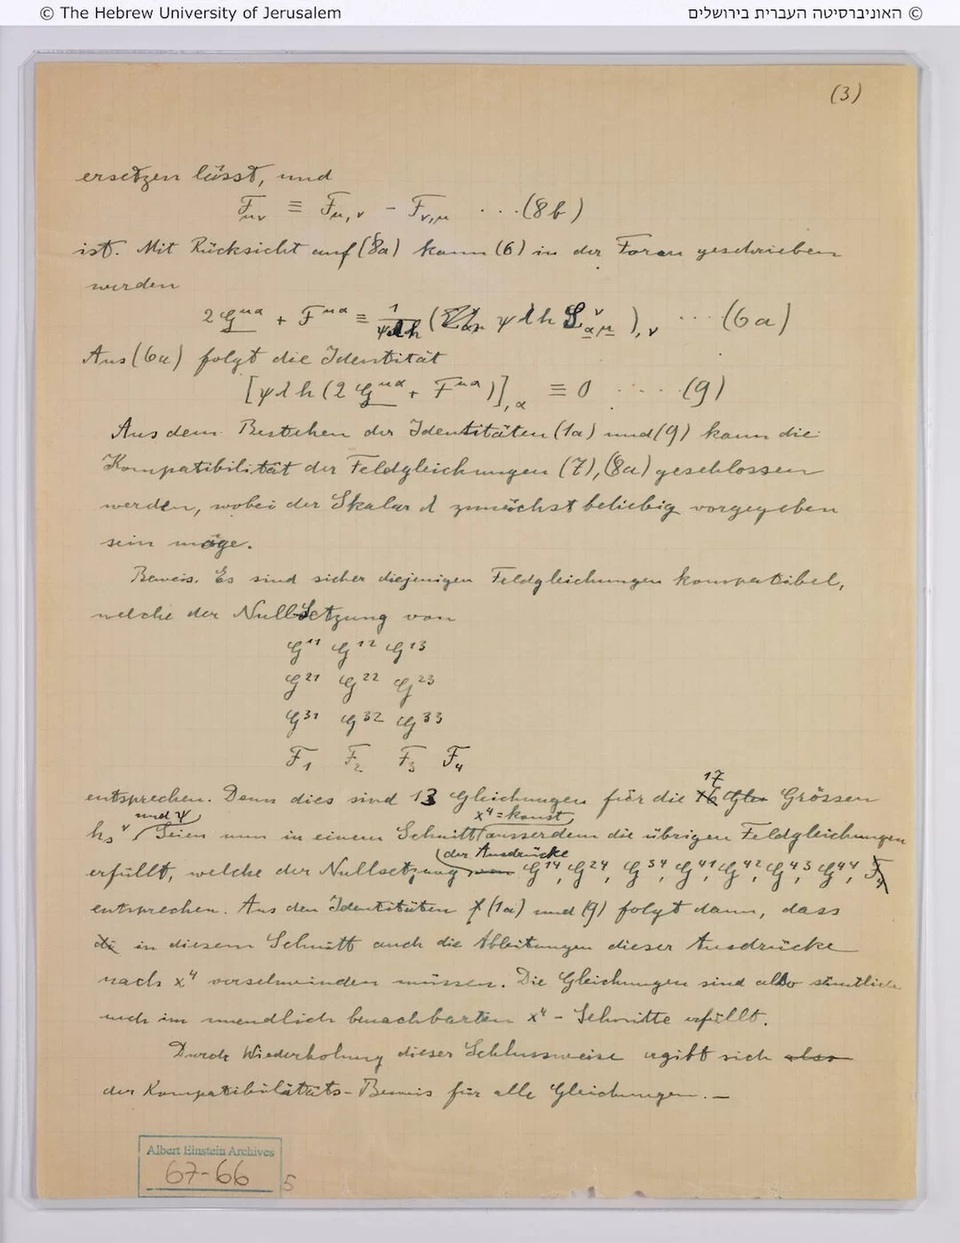 © The Hebrew University of Jerusalem
© האוניברסיטה העברית בירושלים
(3)
ersetzen lässt, und
F_μν ≡ F_μ,ν - F_ν,μ ...(8b)
ist. Mit Rücksicht auf (8a) kann (6) in der Form geschrieben
werden
2 G^μα + F^μα ≡ 1/ψλh ( ψ λ h L^ν_αμ ),ν ... (6a)
Aus (6a) folgt die Identität
[ψ λ h (2 G^μα + F^μα)],α ≡ 0 .... (9)
Aus dem Bestehen der Identitäten (1a) und (9) kann die
Kompatibilität der Feldgleichungen (7), (8a) geschlossen
werden, wobei der Skalar λ zunächst beliebig vorgegeben
sein möge.
Beweis. Es sind sicher diejenigen Feldgleichungen kompatibel,
welche der Nullsetzung von
G^11 G^12 G^13
G^21 G^22 G^23
G^31 G^32 G^33
F_1 F_2 F_3 F_4
entsprechen. Denn dies sind 13 Gleichungen für die 17 Grössen
h_s^ν und ψ. Seien nun in einem Schnitt x^4 = konst ausserdem die übrigen Feldgleichungen
erfüllt, welche der Nullsetzung der Ausdrücke G^14, G^24, G^34, G^41, G^42, G^43, G^44,
entsprechen. Aus den Identitäten (1a) und (9) folgt dann, dass
in diesem Schnitt auch die Ableitungen dieser Ausdrücke
nach x^4 verschwinden müssen. Die Gleichungen sind also sämtlich
auch im unendlich benachbarten x^4 - Schnitte erfüllt.
Durch Wiederholung dieser Schlussweise ergibt sich also
der Kompatibilitäts-Beweis für alle Gleichungen. —
Albert Einstein Archives
67-66
5